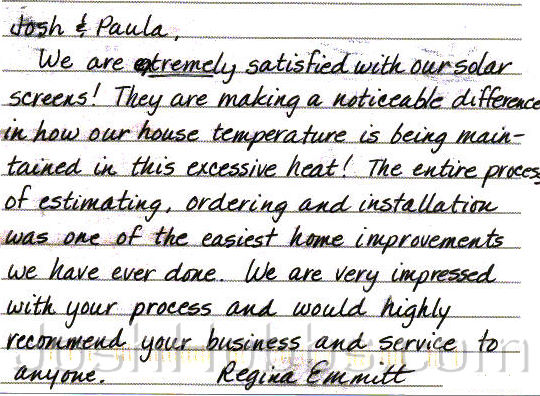 Josh & Paula,
We are extremely satisfied with our solar
screens! They are making a noticeable difference
in how our house temperature is being main-
tained in this excessive heat! The entire process
of estimating, ordering and installation
was one of the easiest home improvements
we have ever done. We are very impressed
with your process and would highly
recommend your business and service to
anyone. Regina Emmitt
JoshHobbs.com